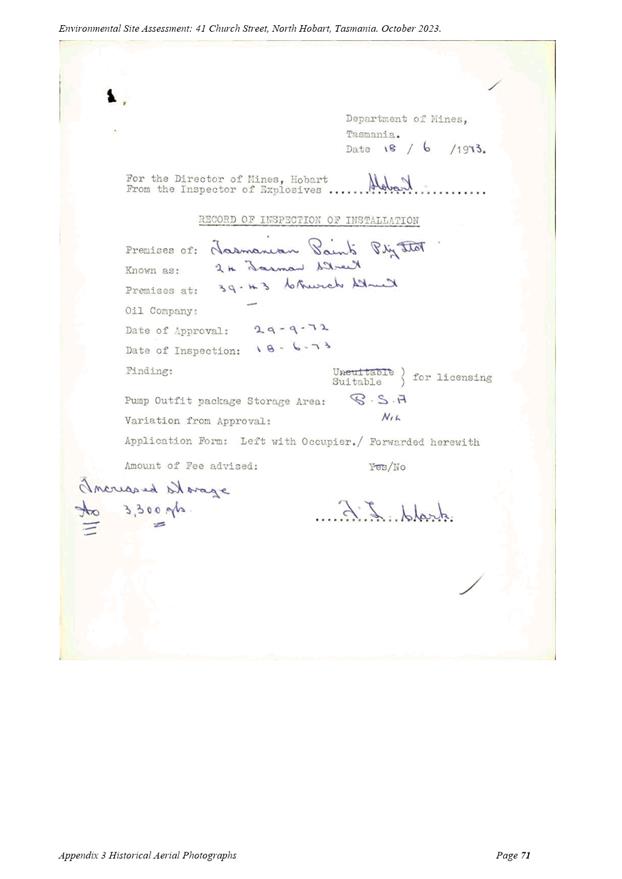 Environmental Site Assessment: 41 Church Street, North Hobart, Tasmania. October 2023.
Department of Mines,
Tasmania.
Date 18 / 6 /1973.
For the Director of Mines, Hobart
From the Inspector of Explosives ...... Hobart ..........
RECORD OF INSPECTION OF INSTALLATION
Premises of: Tasmanian Paints Pty
Known as: Tasman Street
Premises at: 39-43 Church Street
Oil Company: —
Date of Approval: 29-9-72
Date of Inspection: 18-6-73
Finding: Unsuitable )
Suitable ) for licensing
Pump Outfit package Storage Area: P.S.A
Variation from Approval: NIL
Application Form: Left with Occupier./ Forwarded herewith
Amount of Fee advised: Yes/No
Increased storage
to 3,300 gls.
Clark.
Appendix 3 Historical Aerial Photographs Page 71